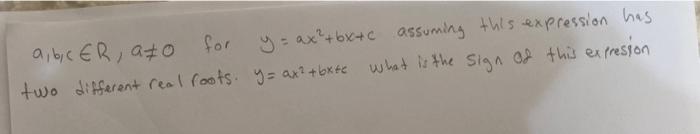 a,b,c ∈ R, a≠0 for y = ax²+bx+c assuming this expression has
two different real roots. y = ax²+bx+c what is the sign of this expresion